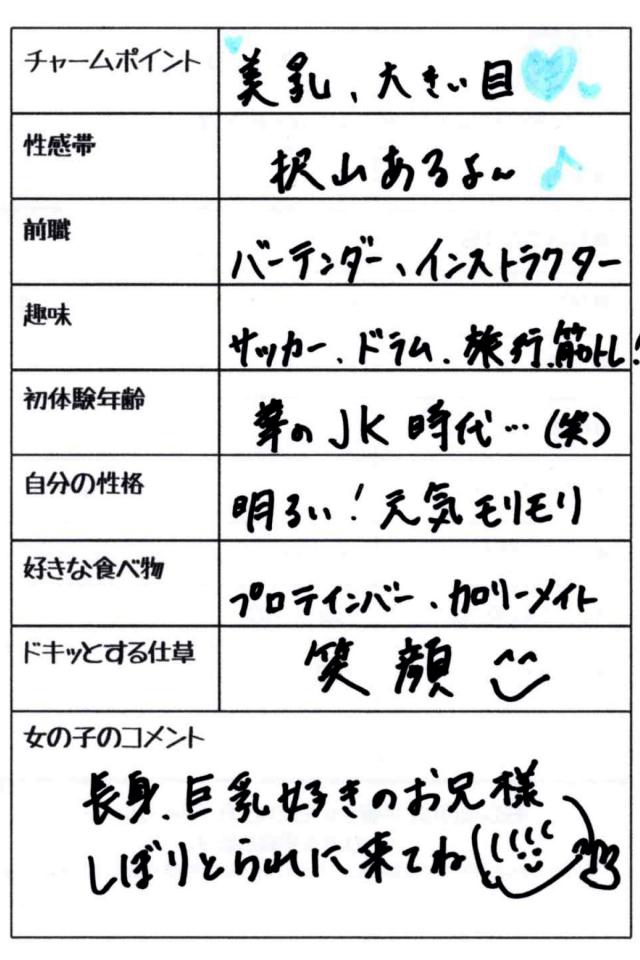 チャームポイント 美乳、大きい目
性感帯 沢山あるよ〜♪
前職 バーテンダー、インストラクター
趣味 サッカー、ドラム、旅行、筋トレ!
初体験年齢 華のJK時代…(笑)
自分の性格 明るい!元気モリモリ
好きな食べ物 プロテインバー、カロリーメイト
ドキッとする仕草 笑顔
女の子のコメント
長身、巨乳好きのお兄様
しぼりとられに来てね